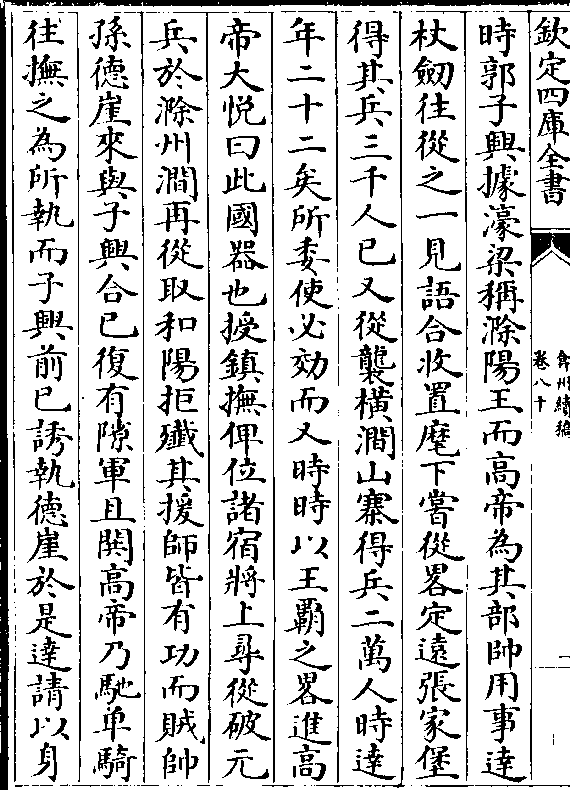 欽定四庫全書
弇州續稿
卷八十
時郭子興據濠梁稱滁陽王而高帝為其部帥用事達
杖劒往從之一見語合收置麾下嘗從畧定遠張家堡
得其兵三千人已又從襲橫澗山寨得兵二萬人時達
年二十二矣所委使必効而又時時以王覇之畧進高
帝大悅曰此國器也授鎮撫俾位諸宿將上尋從破元
兵於滁州澗再從取和陽拒殱其援師皆有功而賊帥
孫德崖來與子興合已復有隙軍且鬨高帝乃馳单騎
往撫之為所執而子興前已誘執德崖於是達請以身